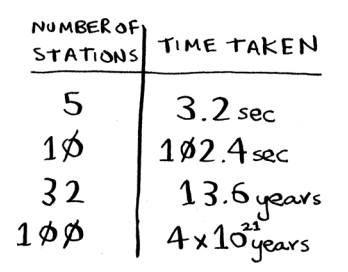 NUMBER OF STATIONS TIME TAKEN
5 3.2 sec
10 102.4 sec
32 13.6 years
100 4 x 10²¹ years